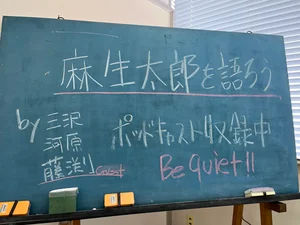 麻生太郎を語ろう
by 三沢
河原
藤渕り
ポッドキャスト収録中
Be Quiet!!